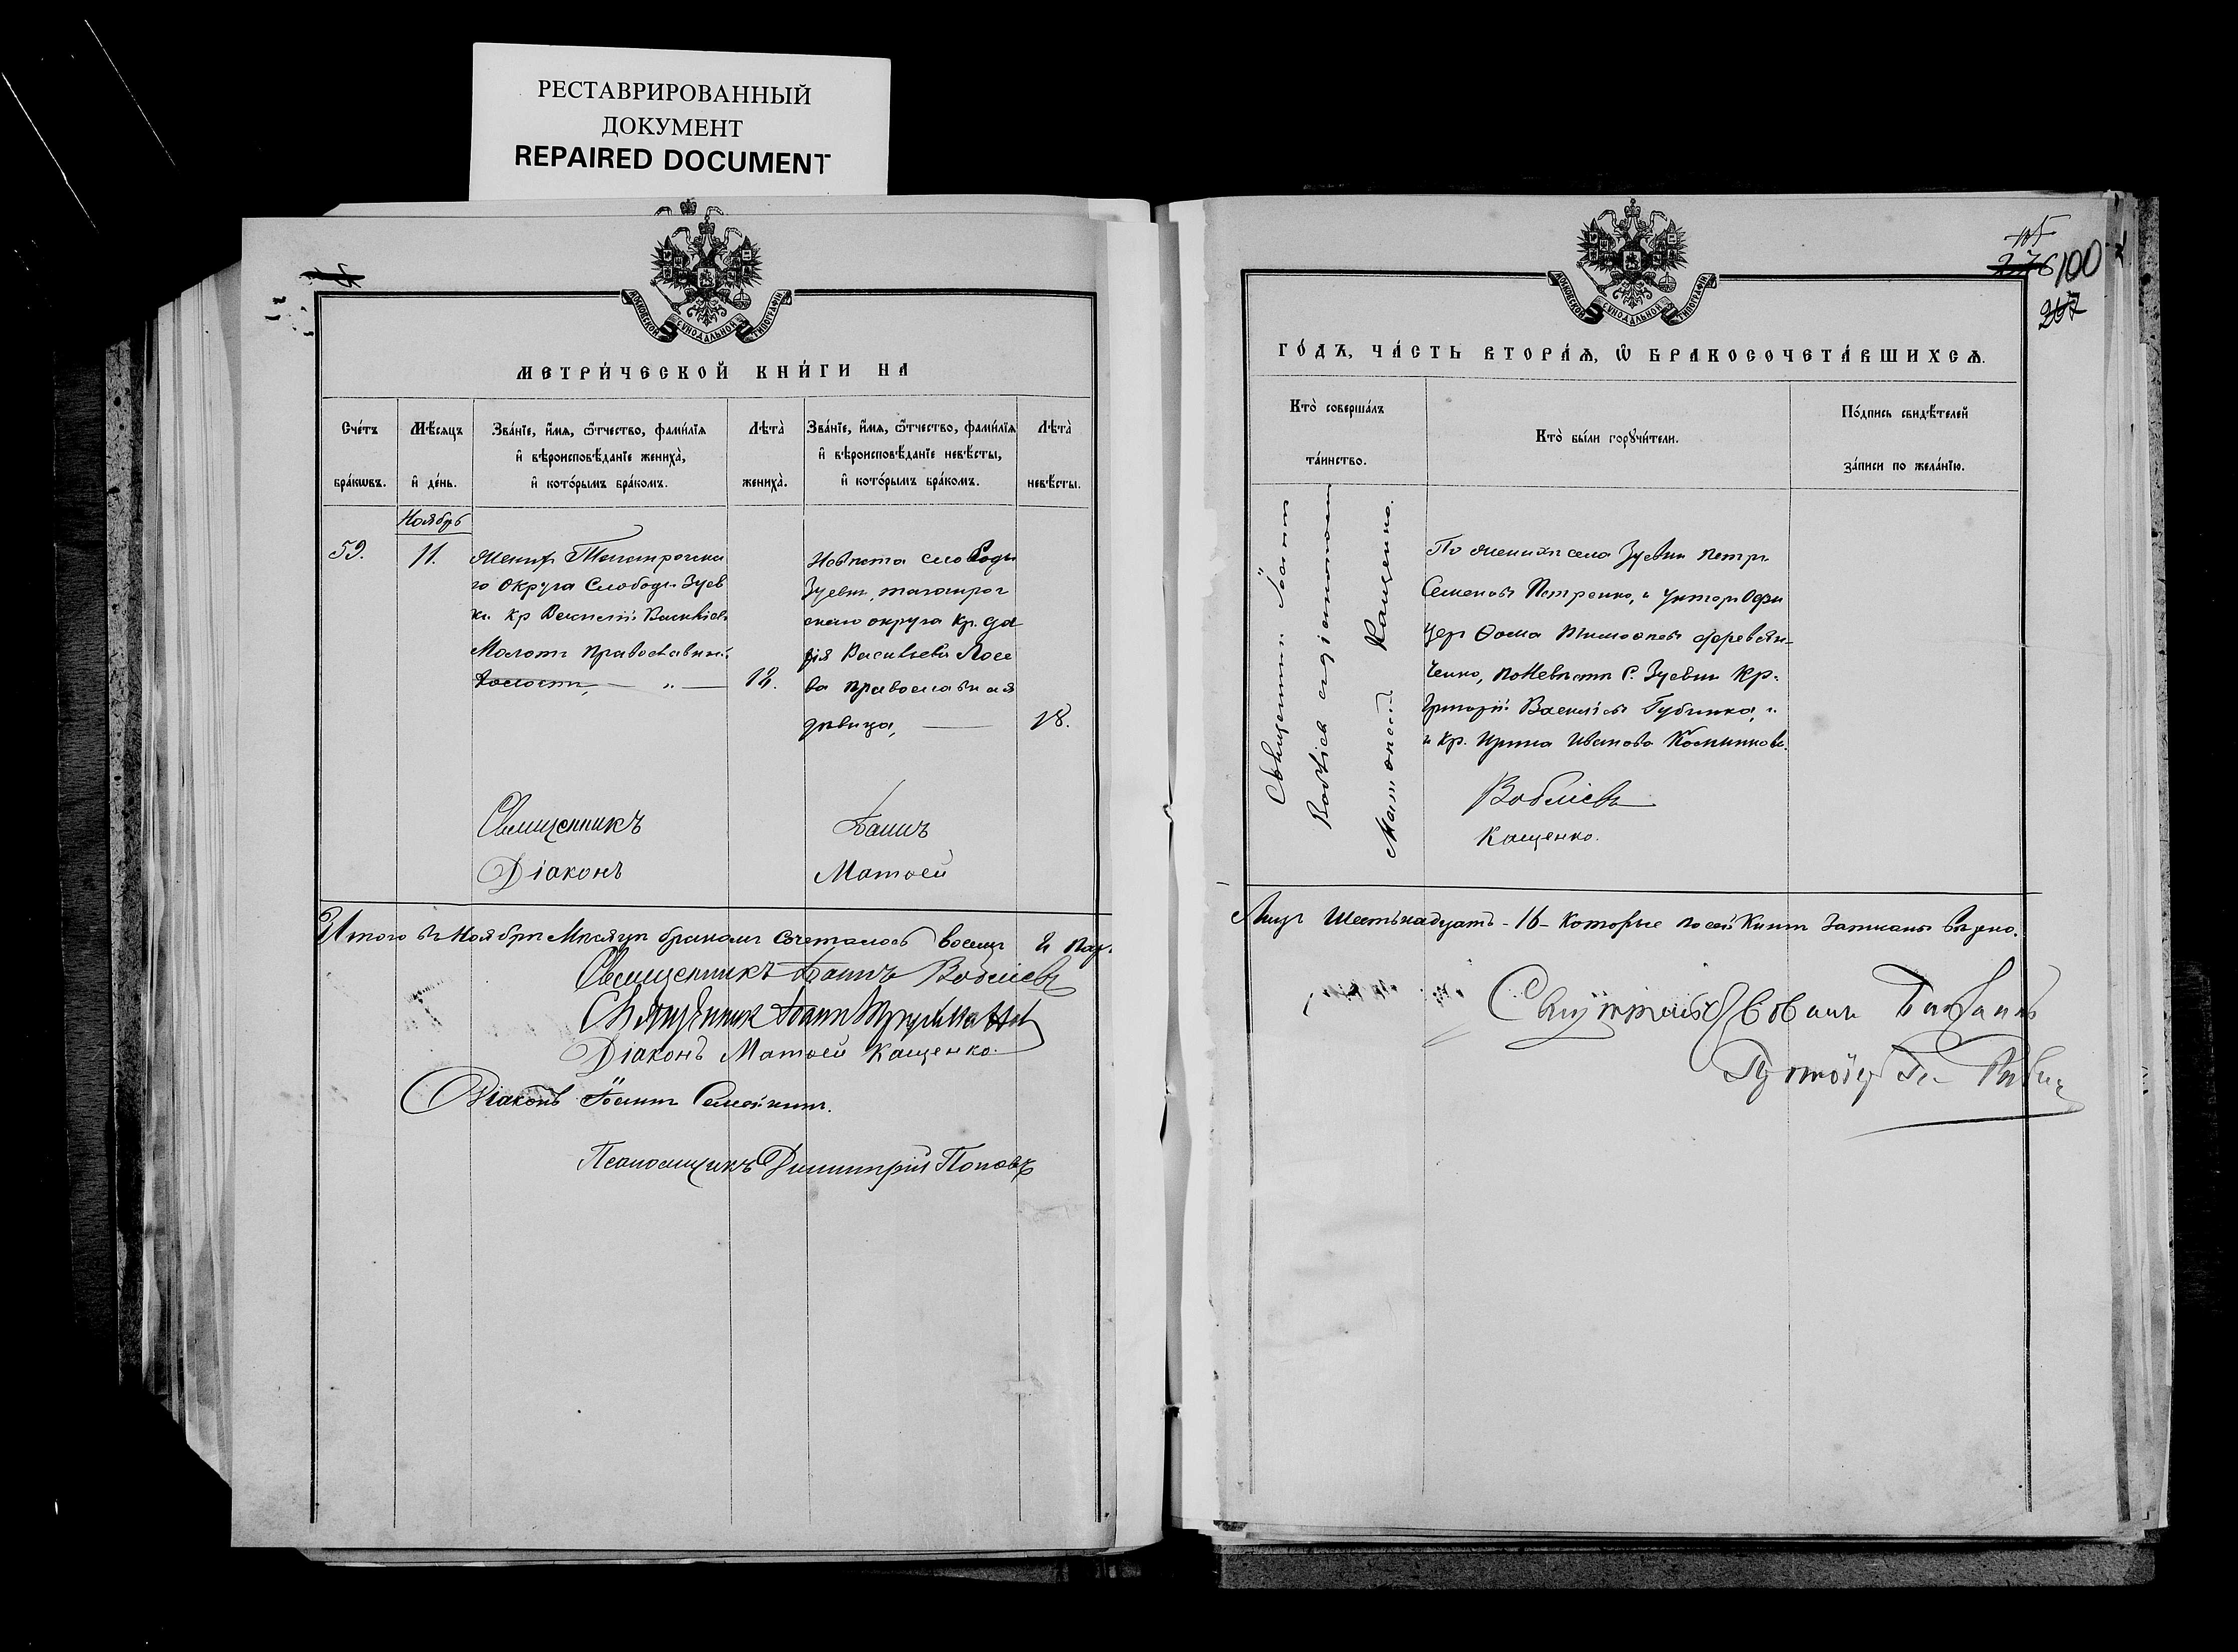 РЕСТАВРИРОВАННЫЙ
ДОКУМЕНТ
REPAIRED DOCUMENT
МОСКОВСКОЙ СѴНОДАЛЬНОЙ ТИПОГРАФІИ
МЕТРИ́ЧЕСКОЙ КНИ́ГИ НА
Сче́тъ бра́кωвъ.
Мѣ́сяцъ и҆ де́нь.
Зва́нїе, и҆́мя, ѻ҆́тчество, фами́лїя
и҆ вѣроисповѣ́данїе жениха̀,
и҆ кото́рымъ бра́комъ.
Лѣта̀ жениха̀.
Зва́нїе, и҆́мя, ѻ҆́тчество, фами́лїя
и҆ вѣроисповѣ́данїе невѣ́сты,
и҆ кото́рымъ бра́комъ.
Лѣта̀ невѣ́сты.
Ноябрь
59.
11.
Женихъ Таганрогска
го округа Слободы Зуев
ки кр Василій Васильевъ
Молотъ православный
18.
Невѣста слободы
Зуевки, таганрог
скаго округа кр.
Васильева Лосе
ва православная
дѣвица,
18.
Священникъ Іоаннъ
Діаконъ Матѳей
Итого въ Ноябрѣ Мѣсяцѣ бракомъ сочеталось восемь 8 паръ
Священникъ Іоаннъ Воблиевъ
Священник Іоанн
Діаконъ Матѳей Кащенко.
Діаконъ Іоаннъ
Псаломщикъ Димитрій Поповъ
МОСКОВСКОЙ СѴНОДАЛЬНОЙ ТИПОГРАФІИ
105
276 100
267
ГО́ДЪ, ЧА́СТЬ ВТОРА́Я, Ѡ҆ БРАКОСОЧЕТА́ВШИХСЯ.
Кто̀ соверша́лъ
та́инство.
Кто̀ бы́ли порꙋчи́тели.
По́дпись свидѣ́телей
за́писи по жела́нїю.
Священникъ Іоаннъ
Воблиевъ съ діакономъ
Матѳеемъ Кащенко.
По женихѣ села Зуевки Петръ
Семеновъ Петренко, и унтеръ Офи
церъ Ѳома
ченко, по Невѣстѣ С. Зуевки Кр.
Григорій Васильевъ Губинка, и
и кр. Ирина Иванова
Воблиевъ
Кащенко.
Лицъ Шестьнадцать - 16 - которые по сей Книгѣ записаны вѣрно.